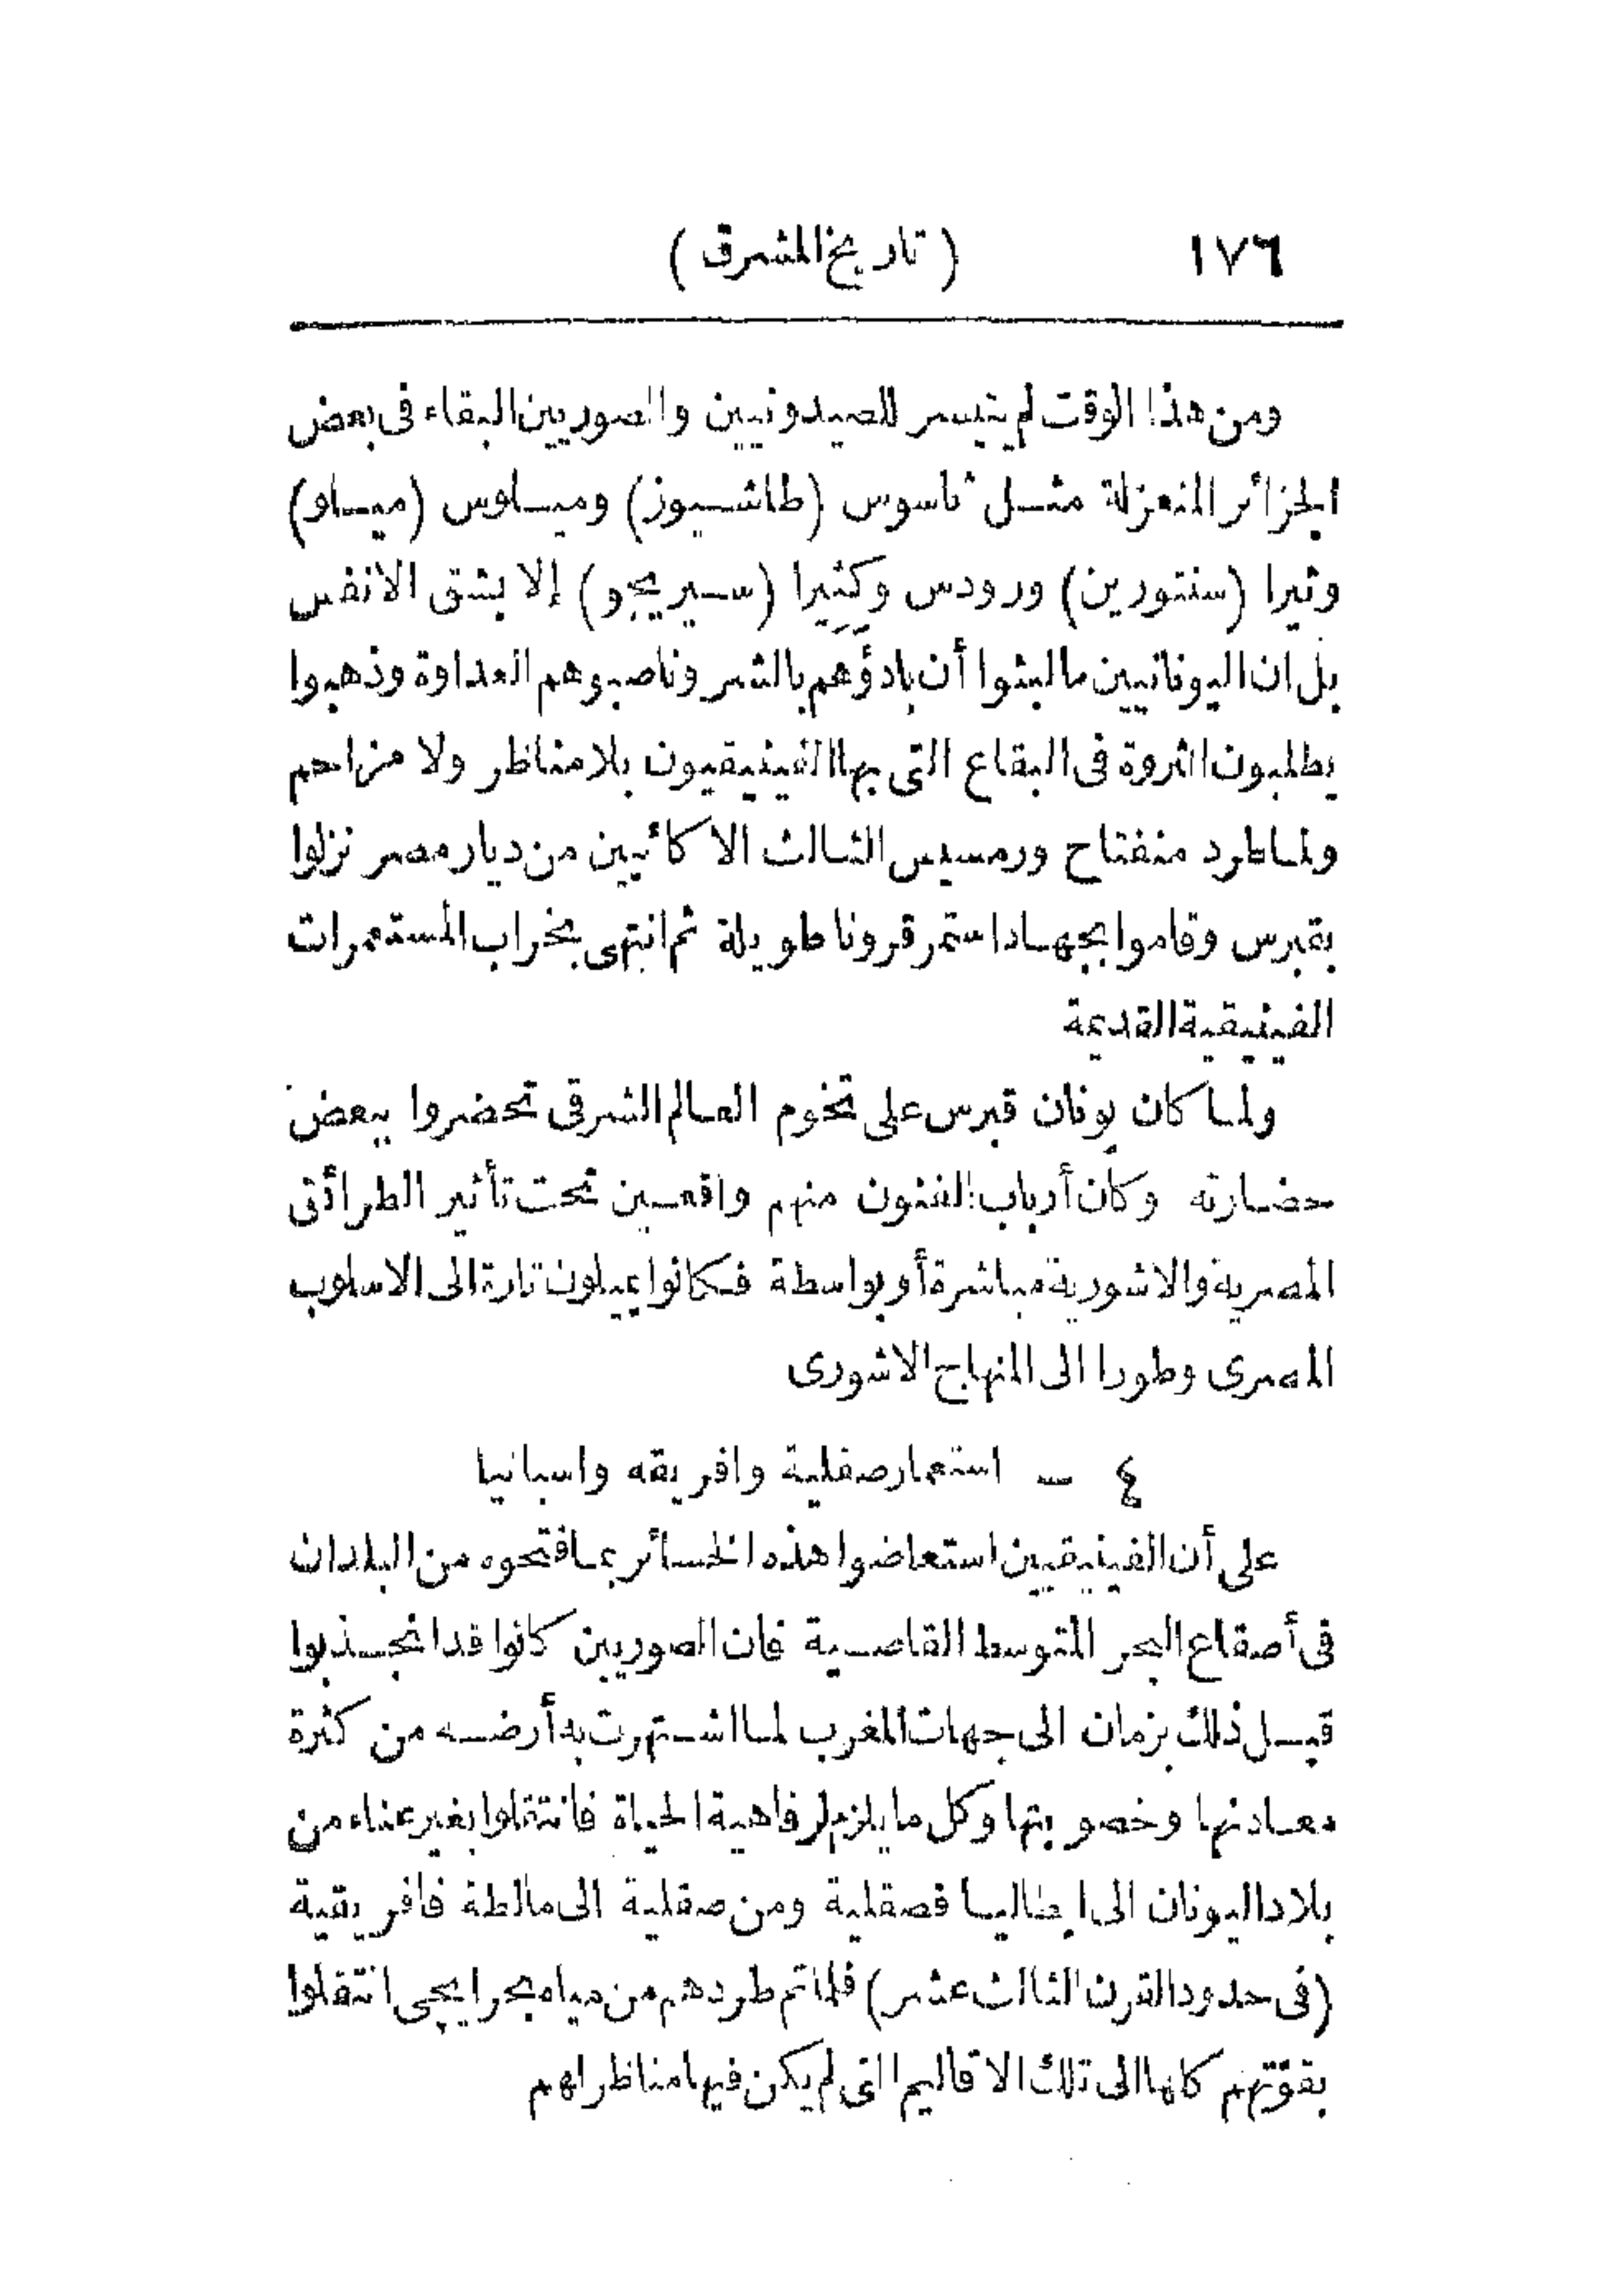 ١٧٦ (تاريخ المشرق)
ومن هذا الوقت لم يتيسر للصيدونيين والصوريين البقاء فى بعض
الجزائر المنعزلة مثل ثاسوس (طاشيوز) وميلوس (ميلو)
وثيرا (سنتورين) ورودس وكثيرا (سيريجو) إلا بشق الانفس
بل ان اليونانيين ما لبثوا أن بادؤهم بالشر وناصبوهم العداوة وذهبوا
يطلبون الثروة فى البقاع التى بها الفينيقيون بلا مناظر ولا مزاحم
ولما طرد منفتاح ورمسيس الثالث الاكائيين من ديار مصر نزلوا
بقبرس وقاموا بجهاد استمر قرونا طويلة ثم انتهى بخراب المستعمرات
الفينيقية القديمة
ولما كان يونان قبرس على تخوم العالم الشرقى تحضروا ببعض
حضارته وكان أرباب الفنون منهم واقعين تحت تأثير الطرائق
المصرية والاشورية مباشرة أو بواسطة فكانوا يميلون تارة الى الاسلوب
المصرى وطورا الى المنهاج الاشورى
٤ – استعمار صقلية وافريقه واسبانيا
على أن الفينيقيين استعاضوا هذه الخسائر بما افتتحوه من البلدان
فى أصقاع البحر المتوسط القاصية فان الصوريين كانوا قد انجذبوا
قبل ذلك بزمان الى جهات المغرب لما اشتهرت به أرضه من كثرة
معادنها وخصوبتها وكل ما يلزم لرفاهية الحياة فانتقلوا بغير عناء من
بلاد اليونان الى ايطاليا فصقلية ومن صقلية الى مالطة فافريقية
(فى حدود القرن الثالث عشر) فلما تم طردهم من مياه بحر ايجى انتقلوا
بقوّتهم كلها الى تلك الاقاليم التى لم يكن فيها مناظر لهم